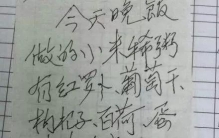 今天晚飯
做的小米稀粥
有红萝卜葡萄干
枸杞子百荷蛋